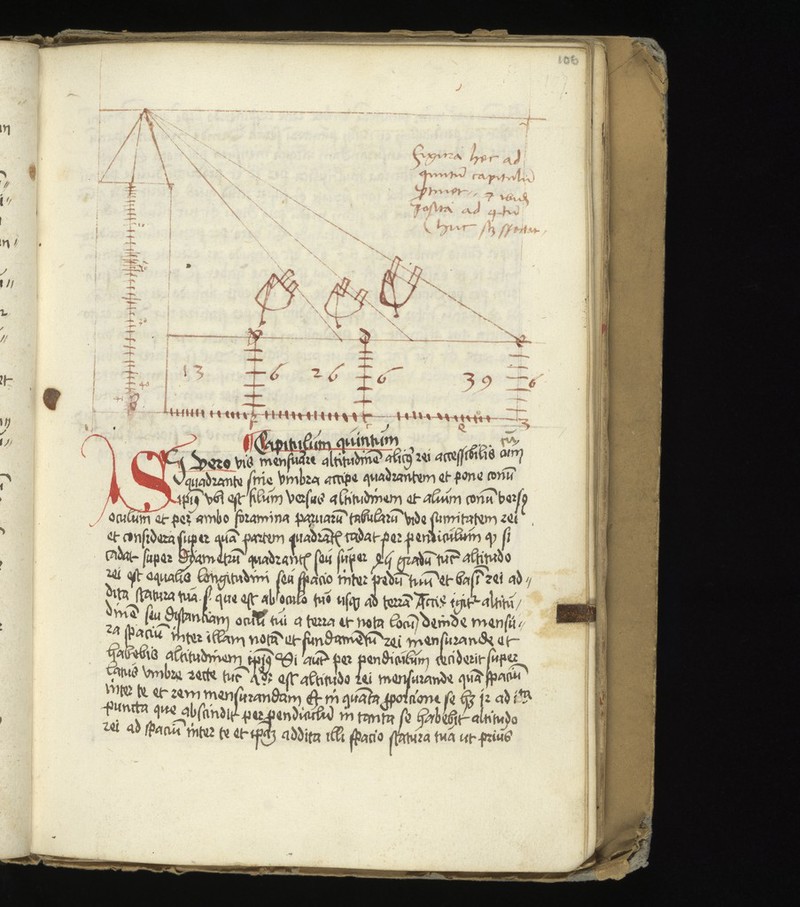 108
figura hec ad
quintum capitulum
posita ad
huc
13 6 26 6 39 6
Capitulum quintum
Si vero vis mensurare altitudinem alicuius rei accessibilis cum
quadrante sine umbra accipe quadrantem et pone conum
ipius ubi est filum versus altitudinem et alium conum versus
oculum et per ambo foramina parvarum tabularum vide sumitatem rei
et considera super quam partem quadrantis cadat perpendiculum quod si
cadat super dyametrum quadrantis seu super 45 gradum tunc altitudo
rei est equalis longitudini seu spacio inter pedem tuum et basim rei ad-
dita statura tua .s. que est ab oculo tuo usque ad terram Accipe igitur altitu-
dinem seu distantiam oculi tui a terra et nota locum deinde mensu-
ra spacium inter illam notam et fundamentum rei mensurande et
habebis altitudinem ipius Si autem perpendiculum ceciderit super
latus umbre recte tunc est altitudo rei mensurande quam spacium
inter te et rem mensurandam Et in quanta proporcione se habet 12 ad ista
puncta que abscindit perpendiculum in tanta se habebit altitudo
rei ad spacium inter te et ipam addita illi spacio statura tua ut prius